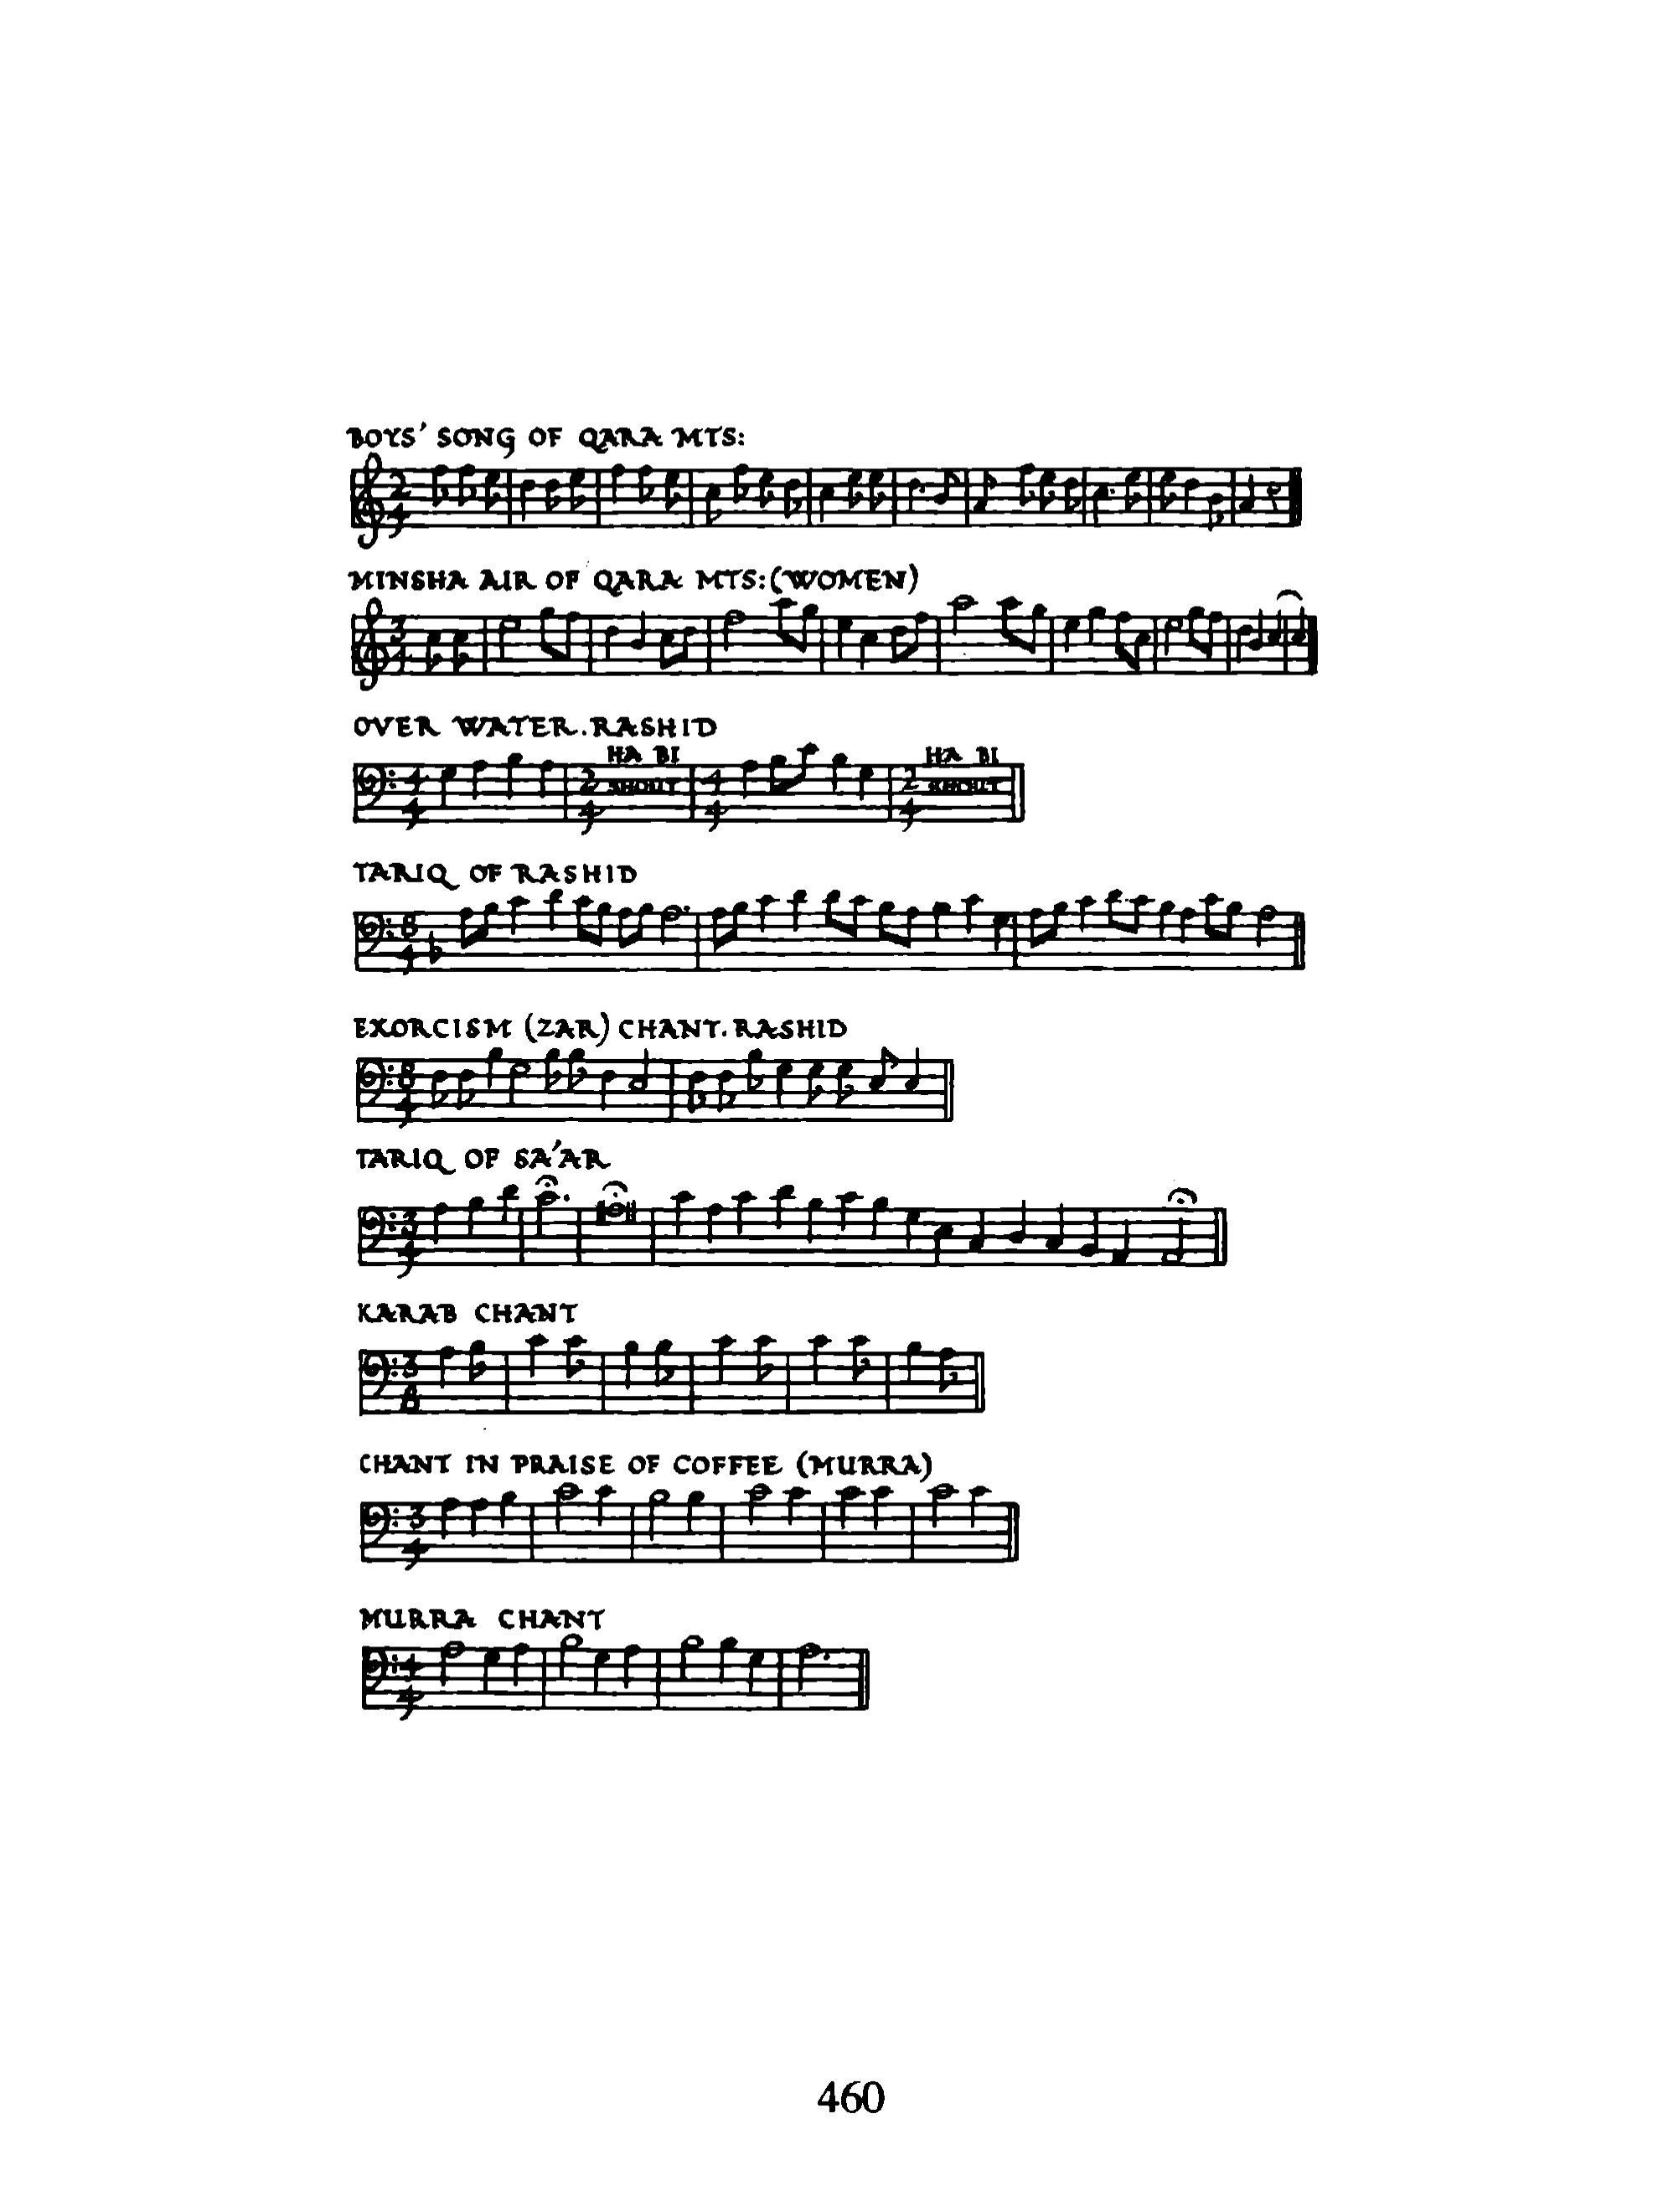 BOYS' SONG OF QARA MTS:
2
4
MINSHA AIR OF QARA MTS:(WOMEN)
3
4
OVER WATER. RASHID
HA BI HA BI
4 2 SHOUT 4 2 SHOUT
4 4 4 4
TARIQ OF RASHID
8
4
EXORCISM (ZAR) CHANT. RASHID
8
4
TARIQ OF SA'AR
3
4
KARAB CHANT
3
8
CHANT IN PRAISE OF COFFEE (MURRA)
3
4
MURRA CHANT
4
4
460